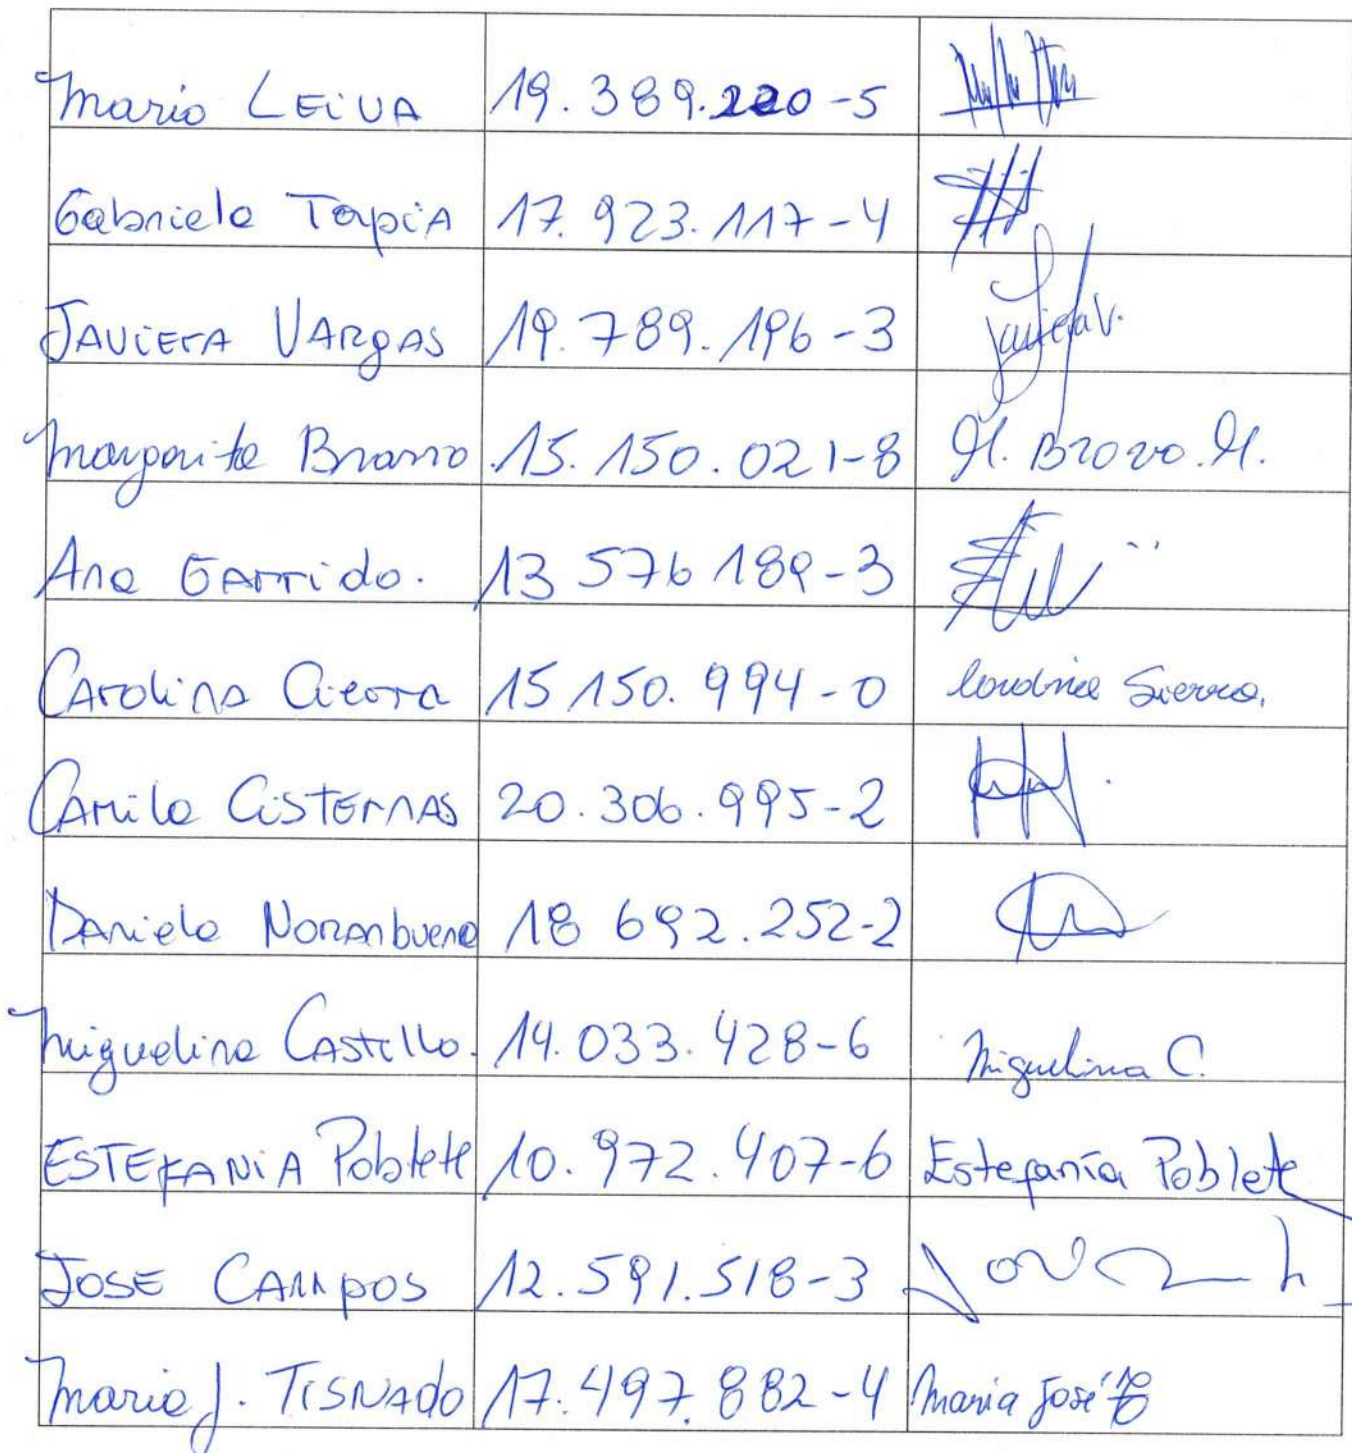 Maria LEiVA 19.389.220-5
Gabriela TapiA 17.923.117-4
JAViErA VARgAS 19.789.196-3 Javiera V.
Margarita Bravo 15.150.021-8 M. Bravo. M.
Ana GArrido. 13 576 189-3
CArolina 15 150.994-0 Carolina Sierra.
CAmila CiSTErnAS 20.306.995-2
DAniela Noranbuena 18 692.252-2
Miguelina CAStillo. 14.033.428-6 Miguelina C.
ESTEfANiA Poblete 10.972.407-6 Estefanía Poblete
JOSE CAMpOS 12.591.518-3
Maria J. TiSNAdo 17.497.882-4 Maria José